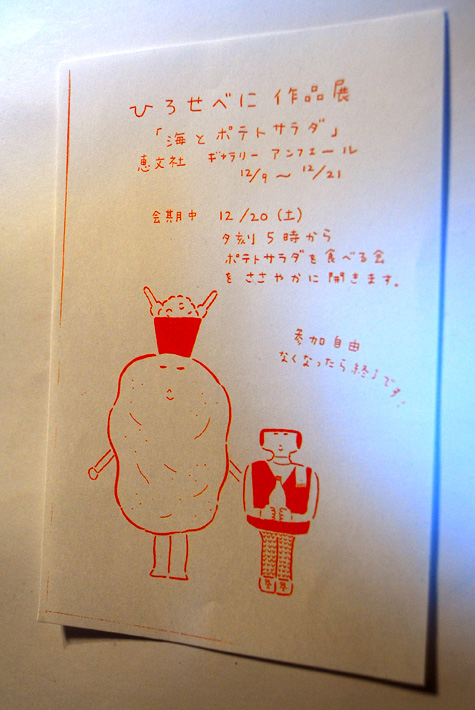 ひろせべに 作品展
「海とポテトサラダ」
恵文社 ギャラリー アンフェール
12/9 〜 12/21
会期中 12/20（土）
夕刻5時から
ポテトサラダを食べる会
をささやかに開きます。
参加自由
なくなったら終了です！